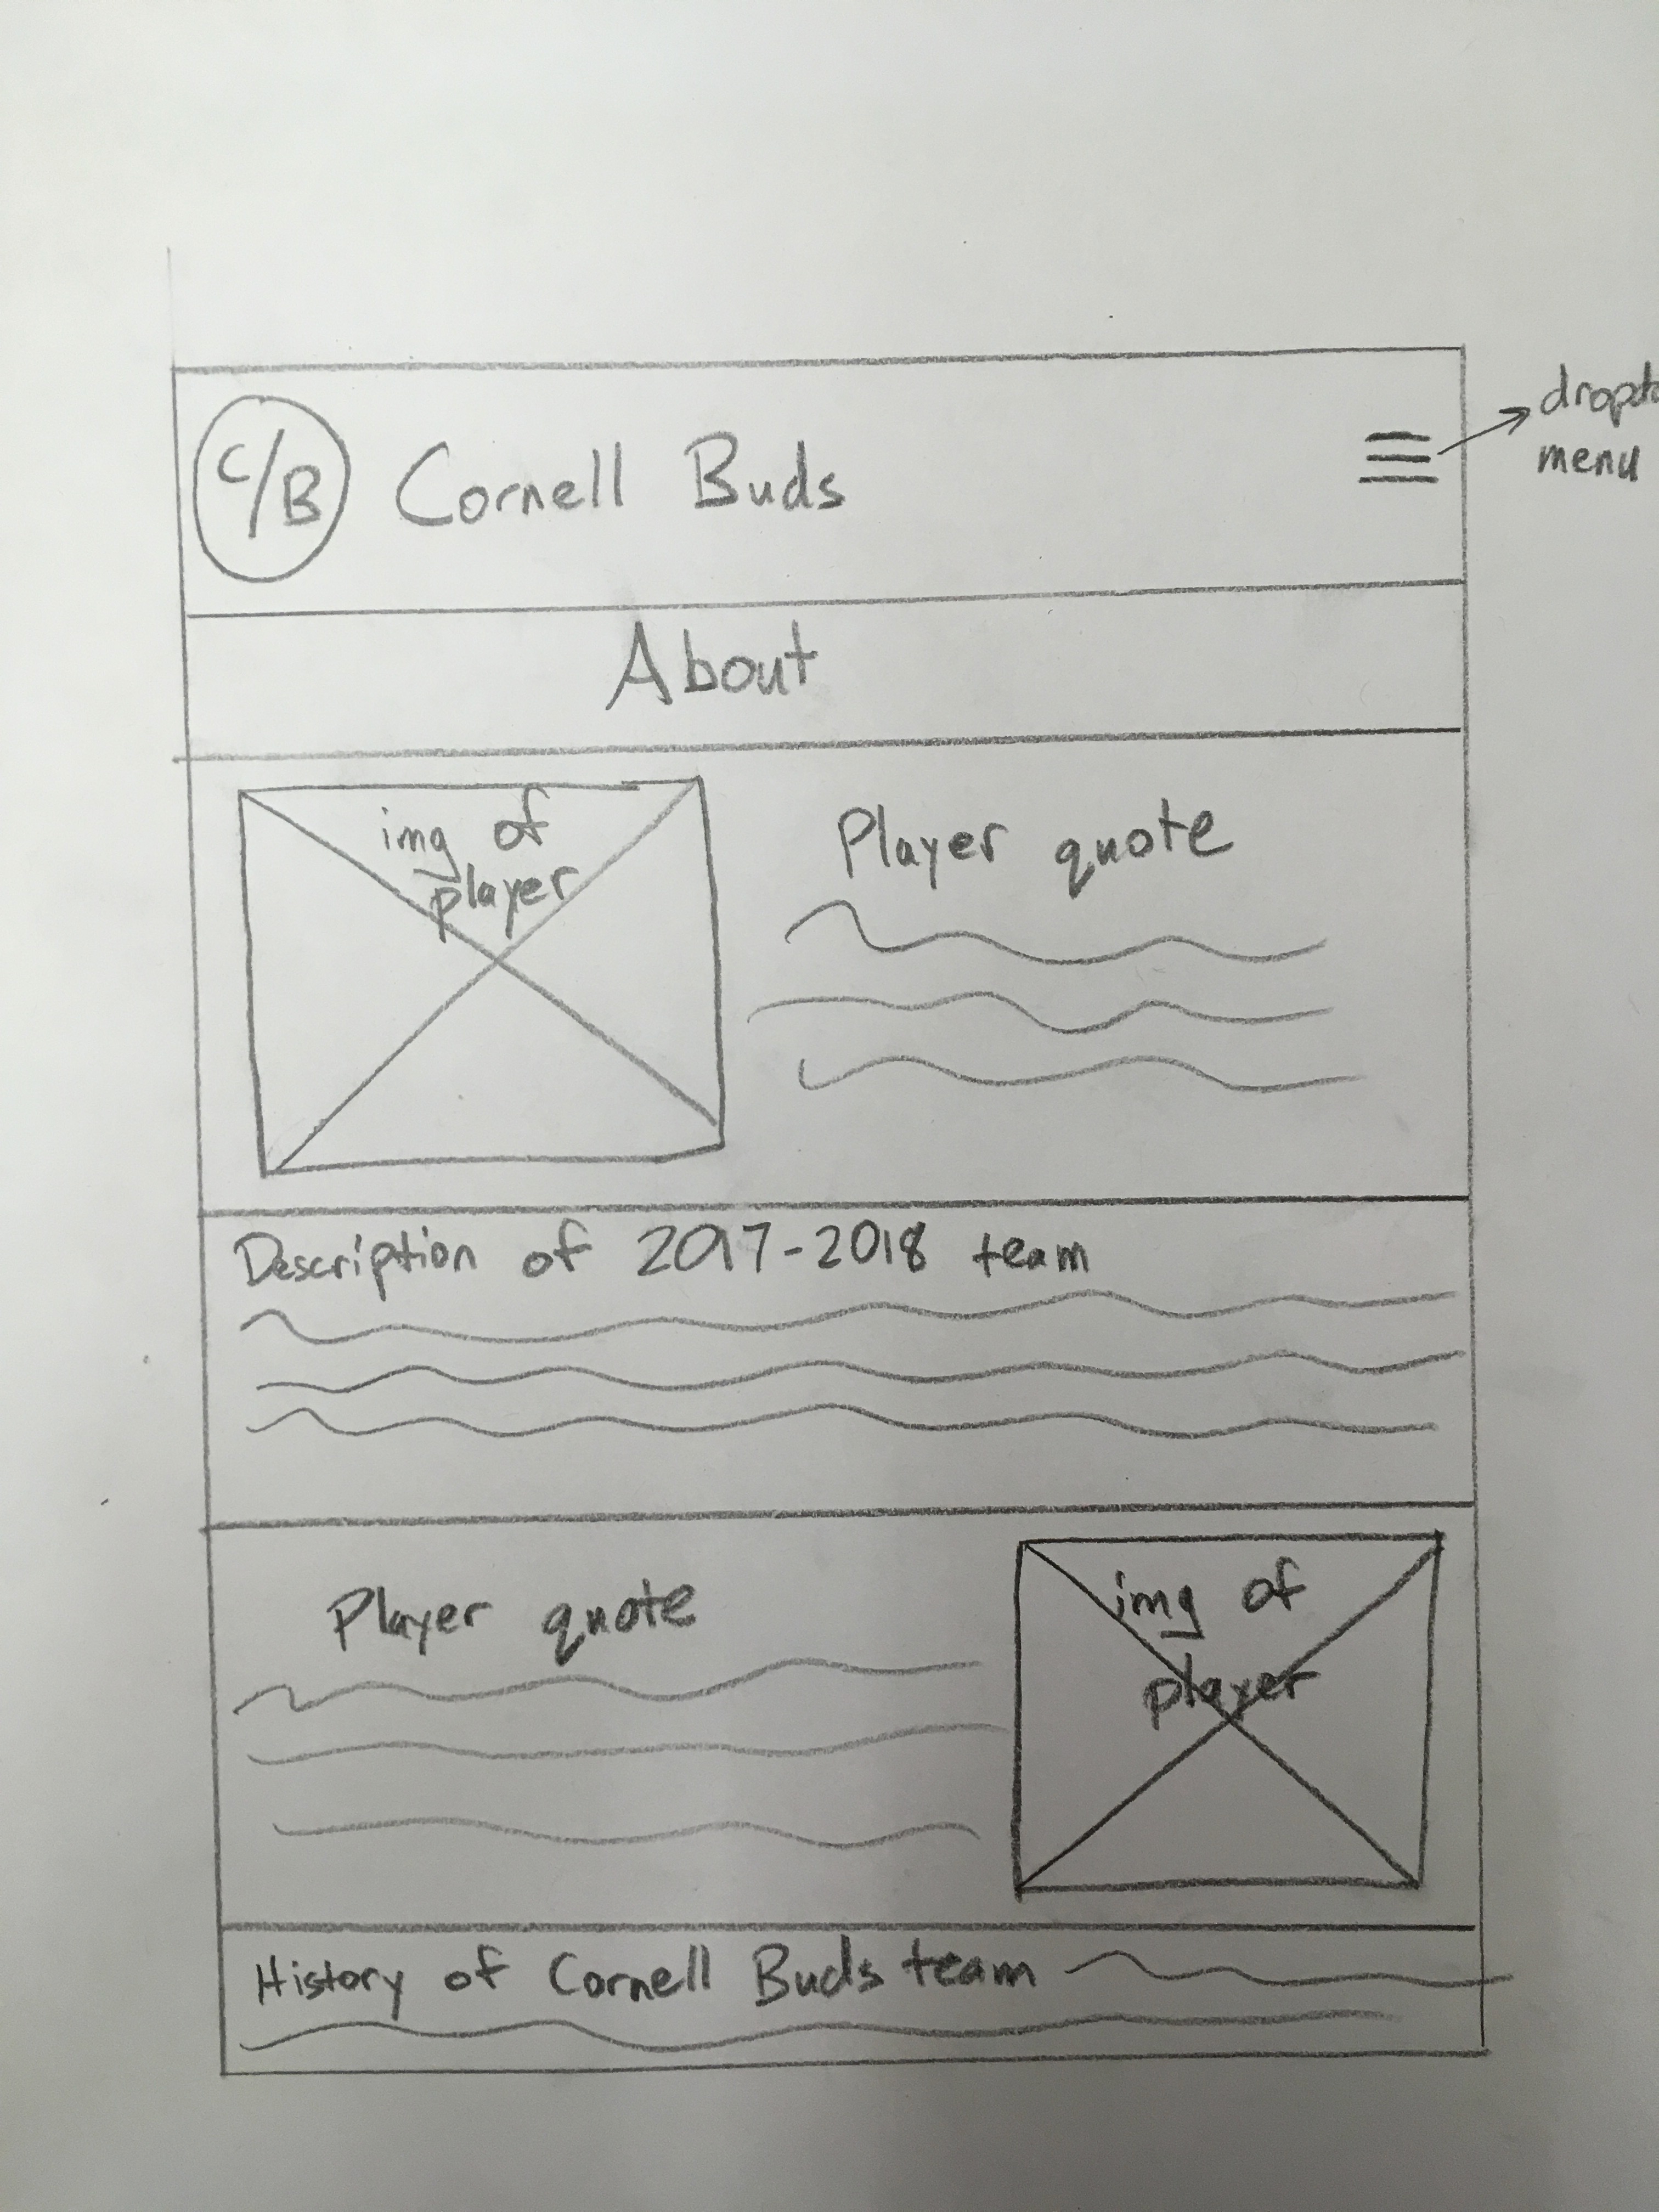 C/B Cornell Buds
menu
About
img of
player
Player quote
Description of 2017-2018 team
Player quote
img of
player
History of Cornell Buds team